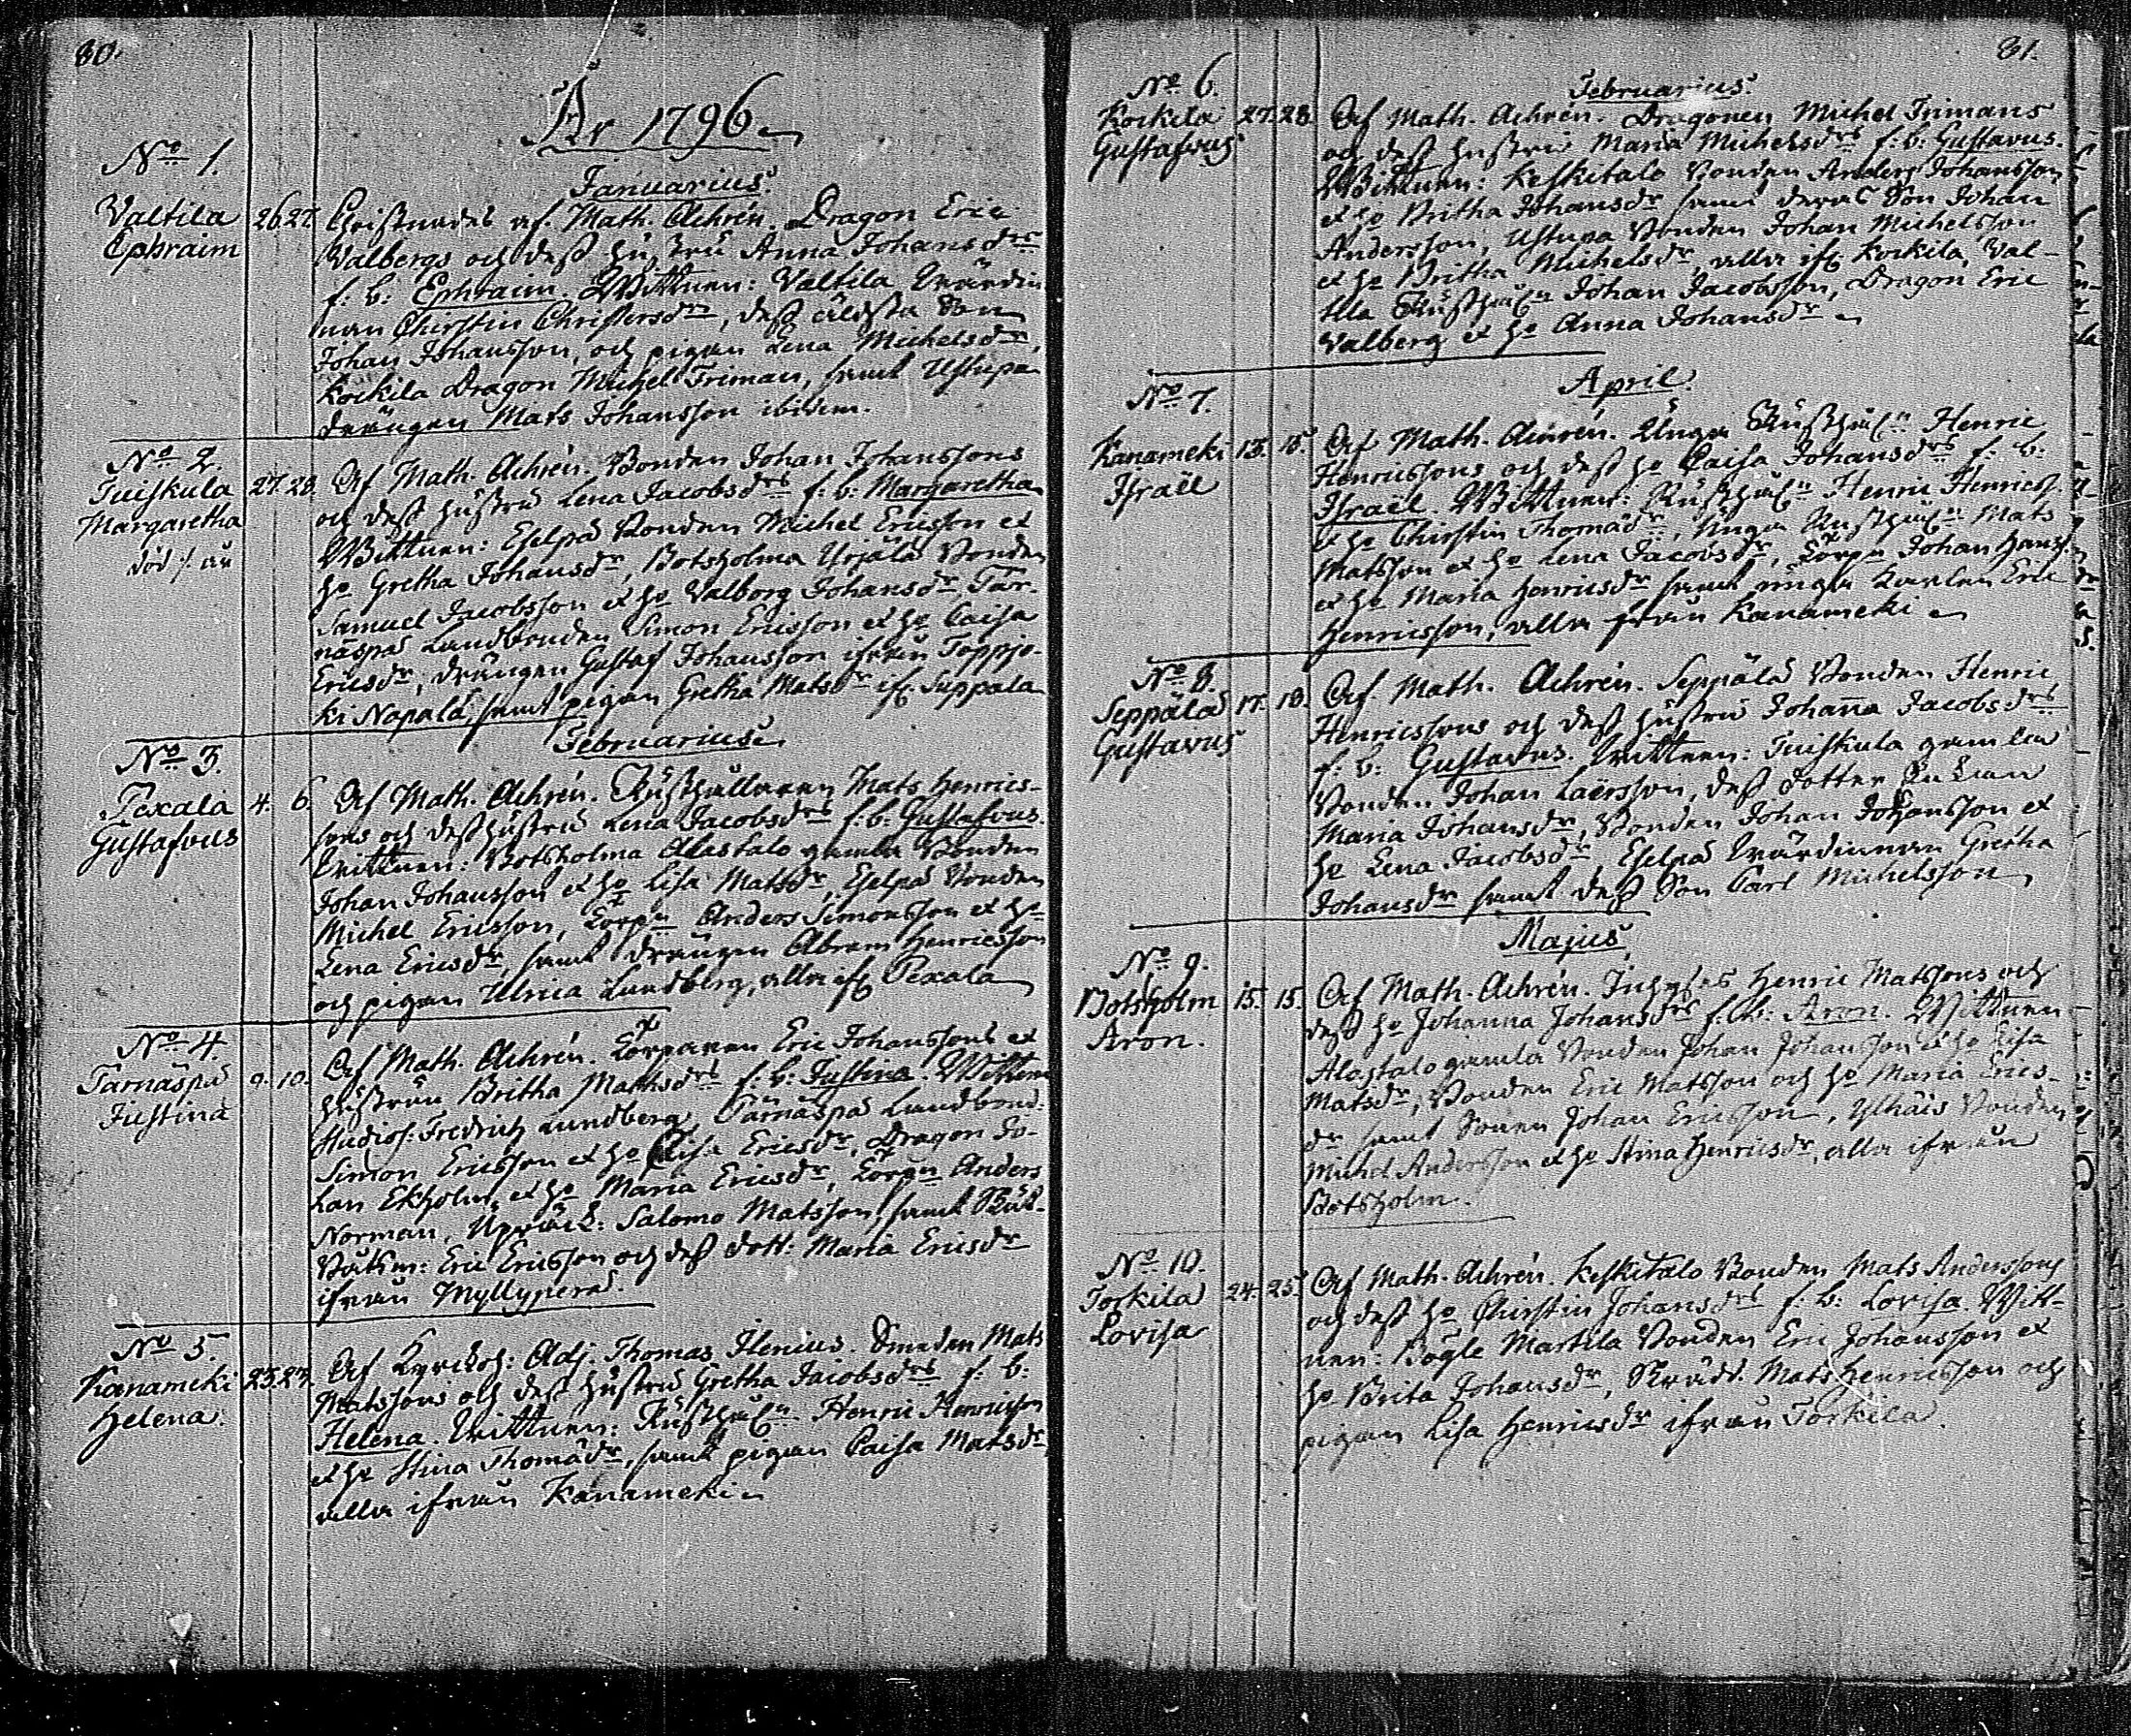 80.
År 1796.
Januarius.
No 1.
Valtila 26. 27. Christnades af Math. Achrén. Dragon Eric
Ephraim Valbergs och dess hustru Anna Johansdrs
f: b: Ephraim. Wittnen: Valtila Wärdin
nan Chirstin Christersdr, dess äldsta Son
Johan Johansson, och pigan Lena Michelsdr,
Kockila Dragon Michel Friman, samt Ustupa
drängen Mats Johansson ibidem.
No 2.
Tuiskula 27. 28. Af Math. Achrén. Bonden Johan Johanssons
Margaretha och dess hustru Lena Jacobsdrs f: b: Margaretha
Wittnen: Eselpä Bonden Michel Ericsson et
död
ho Gretha Johansdr, Botsholma Yrjälä Bonden
Samuel Jacobsson et ho Valborg Johansdr, Tar-
näspä Landbonden Simon Ericsson et ho Caisa
Ericsdr, drängen Gustaf Johansson ifrån Toppjo-
ki Napala, samt pigan Gretha Matsdr if: Suppala
Februarius.
No 3.
Pexala 4. 6. Af Math. Achrén. Rusthållaren Mats Henrics-
Gustafvus sons och dess hustru Lena Jacobsdrs f: b: Gustafvus.
Wittnen: Botsholma Alastalo gamla Bonden
Johan Johansson et ho Lisa Matsdr, Eselpä Bonden
Michel Ericsson, Torpn Anders Simonsson et ho
Lena Ericsdr, samt drängen Abram Henricsson
och pigan Ulrica Lundberg, alla if: Pexala
No 4.
Tarnäspä 9. 10. Af Math. Achrén. Torparen Eric Johanssons et
Justina hustrun Britha Mathsdrs f: b: Justina. Wittnen
Studios: Fredrich Lundberg, Tarnäspä Landbond:
Simon Ericsson et ho Caisa Ericsdr, Dragon Jo-
han Ekholm et ho Maria Ericsdr, Torpn Anders
Norman, Salomo Matsson, samt
Eric Ericsson och dess dott: Maria Ericsdr
ifrån Myllyperä.
No 5.
Kanameki 23. 27. Af Kyrckoh: Adj: Thomas Ilenius. Smeden Mats
Helena. Matssons och dess hustru Gretha Jacobsdrs f: b:
Helena. Wittnen: Rusthåln Henric Henricsson
et ho Stina Thomädr, samt pigan Caisa Matsdr
alla ifrån Kanameki
81.
Februarius.
No 6.
Kockila 27. 28. Af Math. Achrén. Dragonen Michel Frimans
Gustafvus och dess hustru Maria Michelsdrs f: b: Gustavus.
Wittnen: Keskitalo Bonden Anders Johansson
et ho Britha Johansdr samt deras Son Johan
Andersson, Ustupa Bonden Johan Michelsson
et ho Britha Michelsdr, alla if: Kockila, Val-
tila Rusthåln Johan Jacobsson, Dragon Eric
Valberg et ho Anna Johansdr
April.
No 7.
Kanameki 13. 15. Af Math. Achrén. Unga Rusthåln Henric
Israël Henricssons och dess ho Caisa Johansdrs f: b:
Israël. Wittnen: Rusthåln Henric Henricss.
et ho Chirstin Thomädr, Unga Rusthåln Mats
Matsson et ho Lena Jacobsdr, Torpn Johan Hanss.
et ho Maria Henricsdr samt unga Karlen Eric
Henricsson, alla från Kanameki
No 8.
Seppälä 17. 18. Af Math. Achrén. Seppälä Bonden Henric
Gustavus Henricssons och dess hustru Johanna Jacobsdrs
f: b: Gustavus. Wittnen: Tuiskula gamla
Bonden Johan Laersson, dess dotter Enkan
Maria Johansdr, Bonden Johan Johansson et
ho Lena Jacobsdr, Eselpä Wärdinnan Gretha
Johansdr samt dess Son Carl Michelsson
Majus
No 9.
Botsholm 15. 15. Af Math. Achrén. Henric Matssons och
Aron. dess ho Johanna Johansdrs f: b: Aron. Wittnen
Alastalo gamla Bonden Johan Johansson et ho Lisa
Matsdr, Bonden Eric Matsson och ho Maria Erics-
dr samt Sonen Johan Ericsson, Ylhäis Bonden
Michel Andersson et ho Stina Henricsdr, alla ifrån
Botsholm.
No 10.
Torkila 24. 25. Af Math. Achrén. Keskitalo Bonden Mats Anderssons
Lovisa och dess ho Chirstin Johansdrs f: b: Lovisa. Witt-
nen: Bögle Martila Bonden Eric Johansson et
ho Brita Johansdr, Skrädd. Mats Henricsson och
pigan Lisa Henricsdr ifrån Torkila.